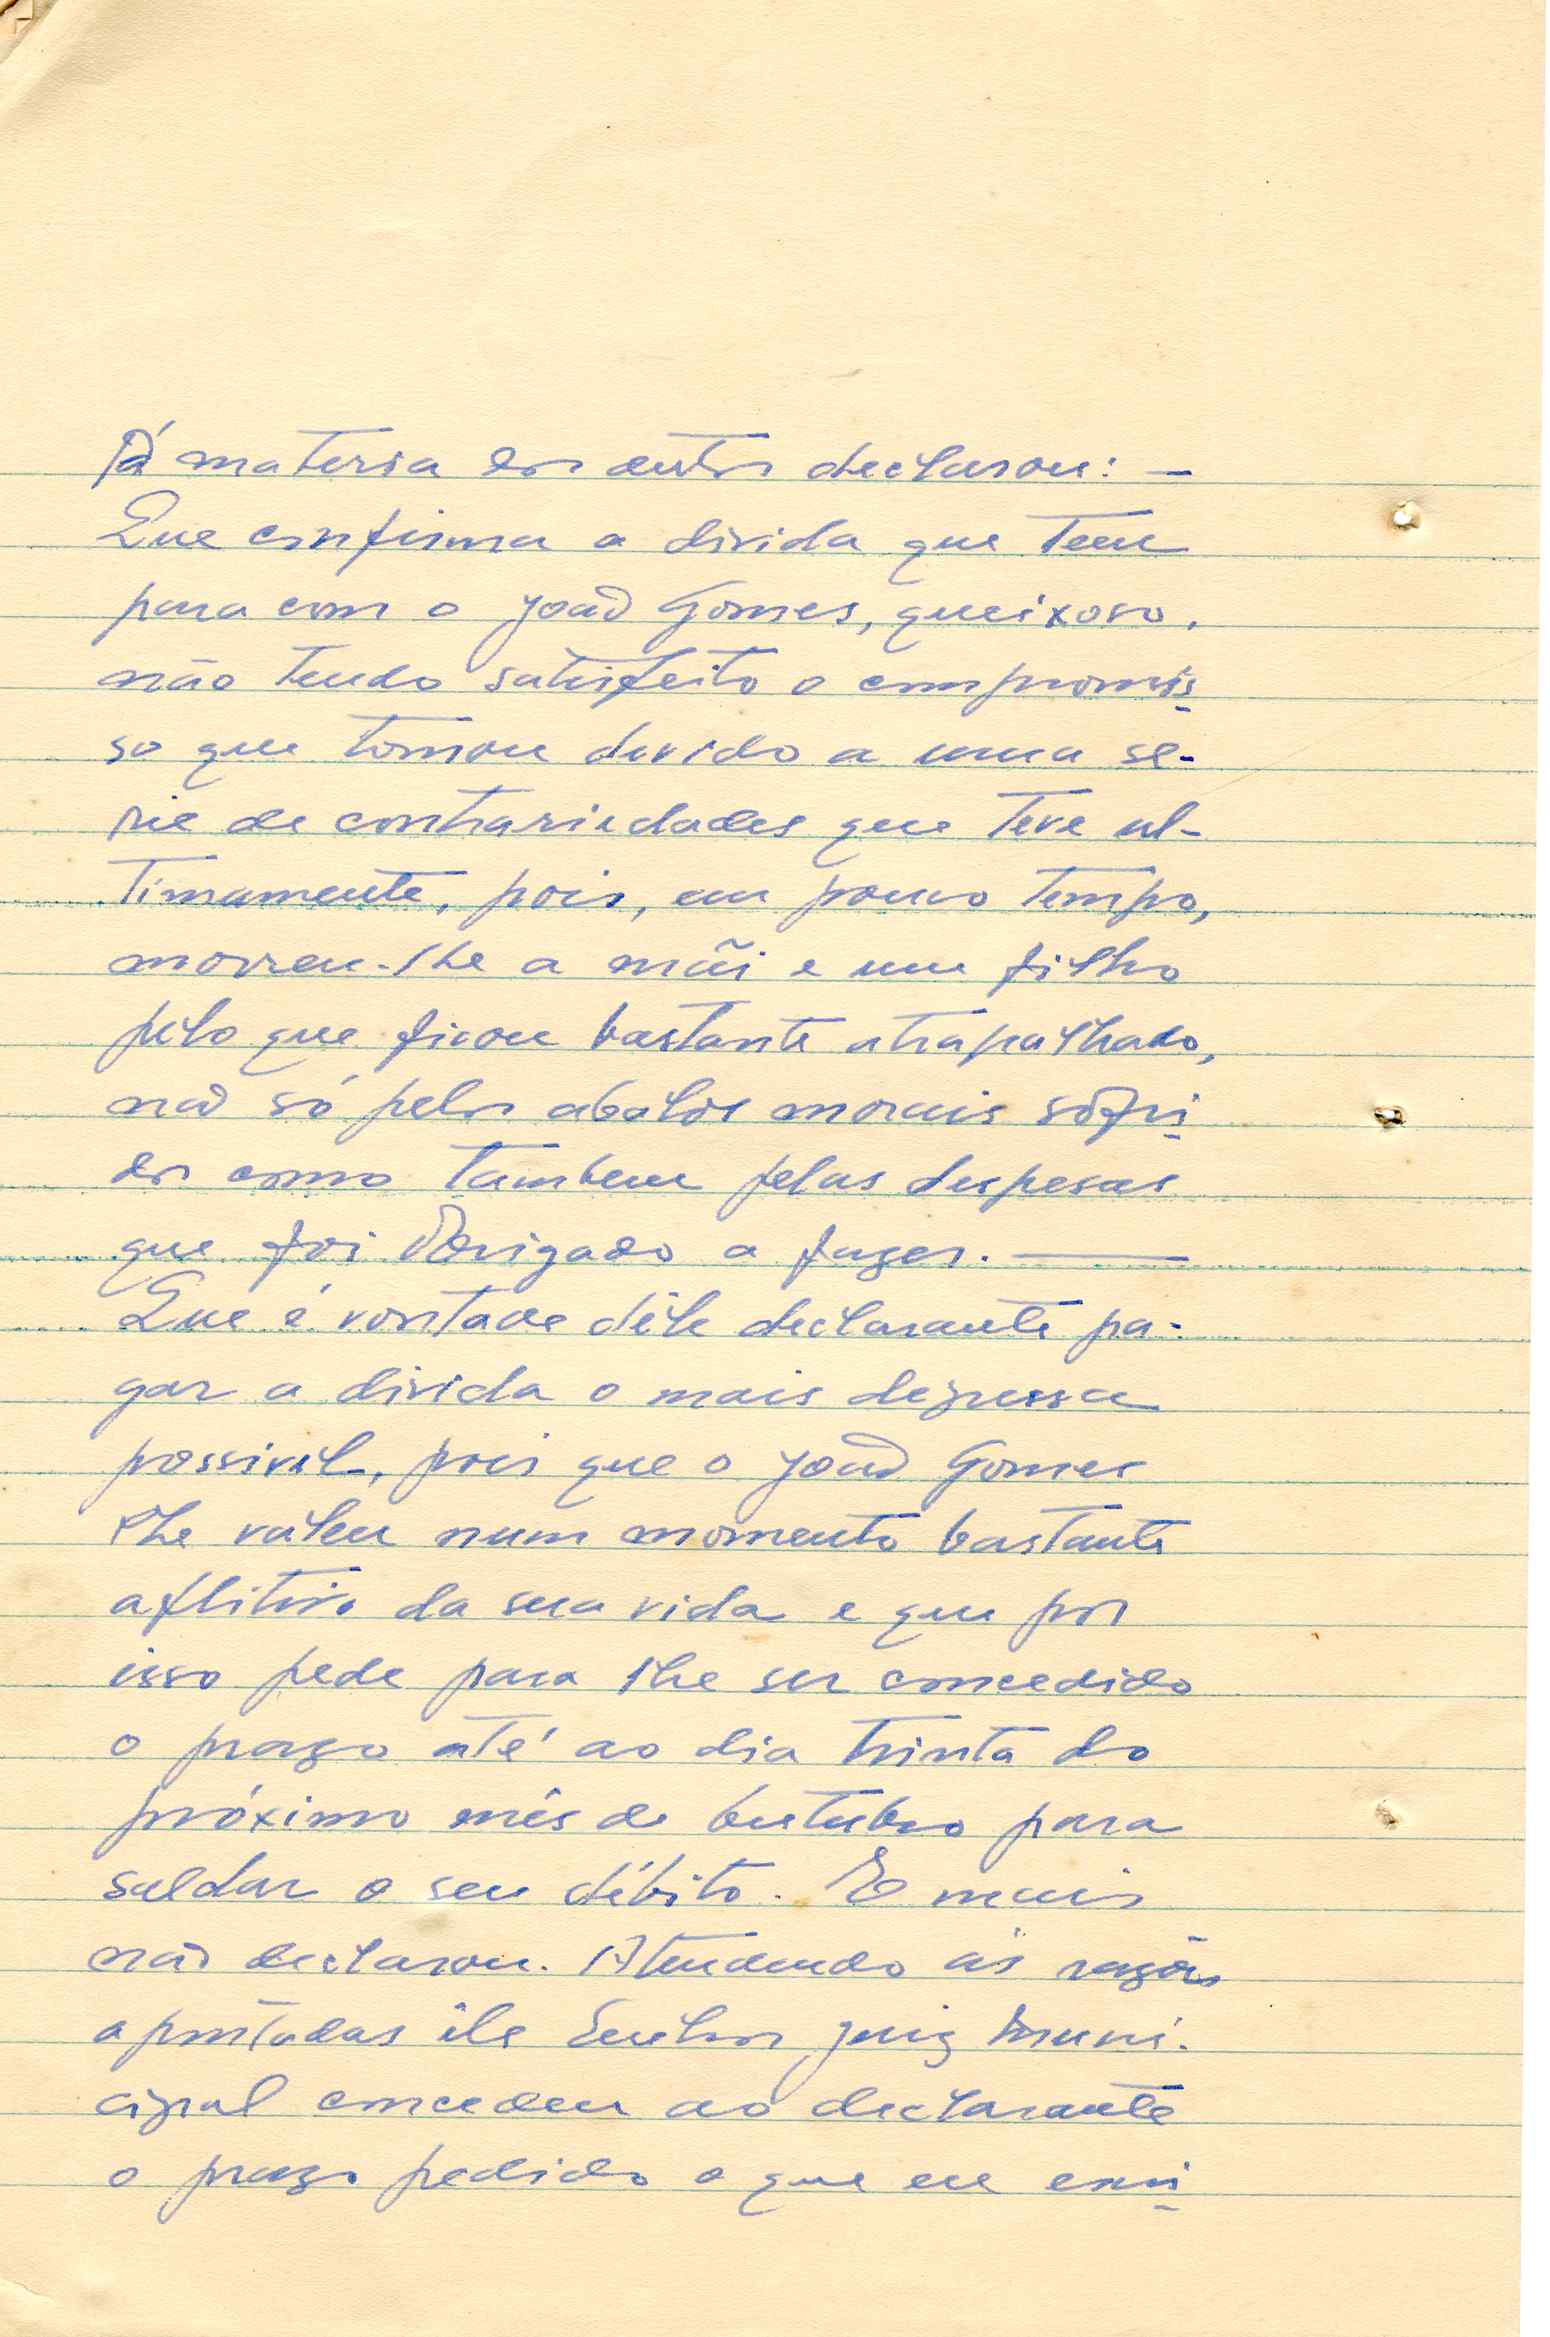 Á materia dos autos declarou: —
Que confirma a divida que tem
para com o João Gomes, queixoso,
não tendo satisfeito o compromis-
so que tomou devido a uma se-
rie de contrariedades que teve ul-
timamente, pois, em pouco tempo,
morreu-lhe a mãi e um filho
pelo que ficou bastante atrapalhado,
não só pelos abalos morais sofri-
dos como tambem pelas despesas
que foi obrigado a fazer. —
Que é vontade dêle declarante pa-
gar a divida o mais depressa
possivel, pois que o João Gomes
lhe valeu num momento bastante
aflitivo da sua vida e que por
isso pede para lhe ser concedido
o prazo até ao dia trinta do
próximo mês de Outubro para
saldar o seu débito. E mais
não declarou. Atendendo ás razões
apontadas êle Senhor Juiz Muni-
cipal concedeu ao declarante
o prazo pedido o que eu